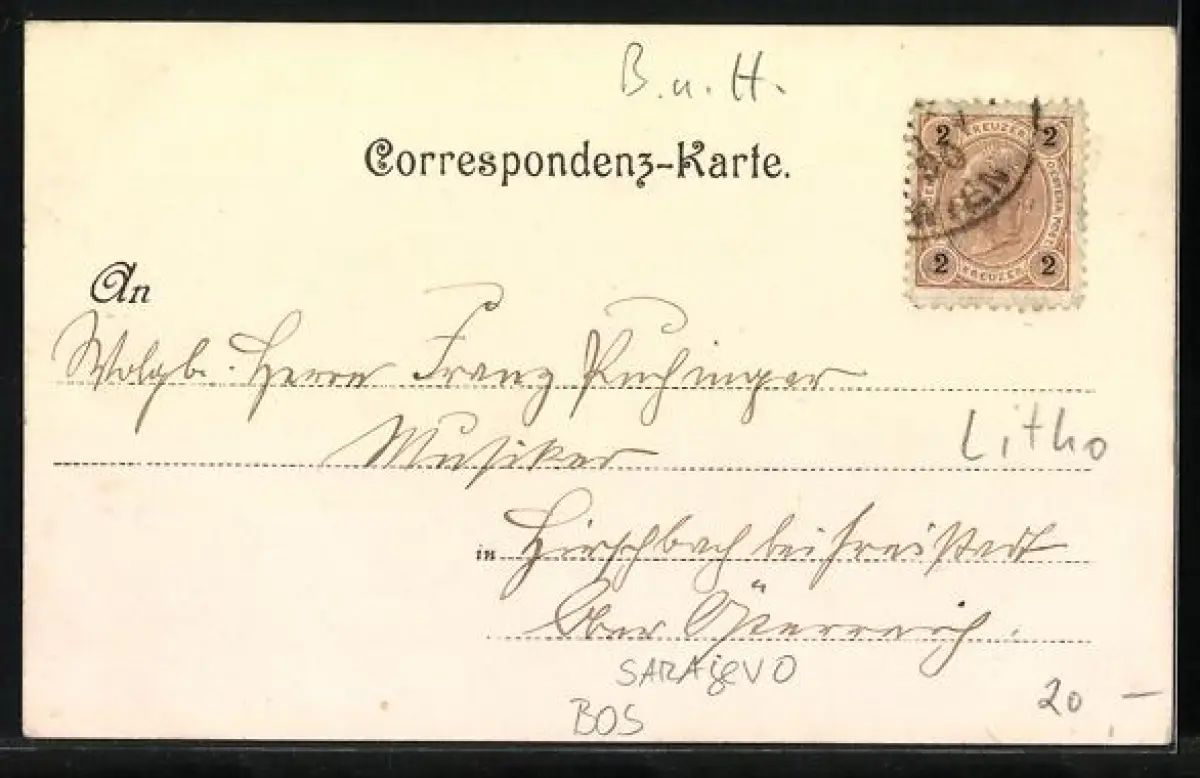 B. u. H.
Correspondenz-Karte.
2 KREUZER 2
WIEN
OESTERR. POST.
2 KREUZER 2
An
Wolgb. Herrn Franz
Musiker
Litho
in Hirschbach bei Freistadt
Ober Österreich.
SARAJEVO
BOS
20,—